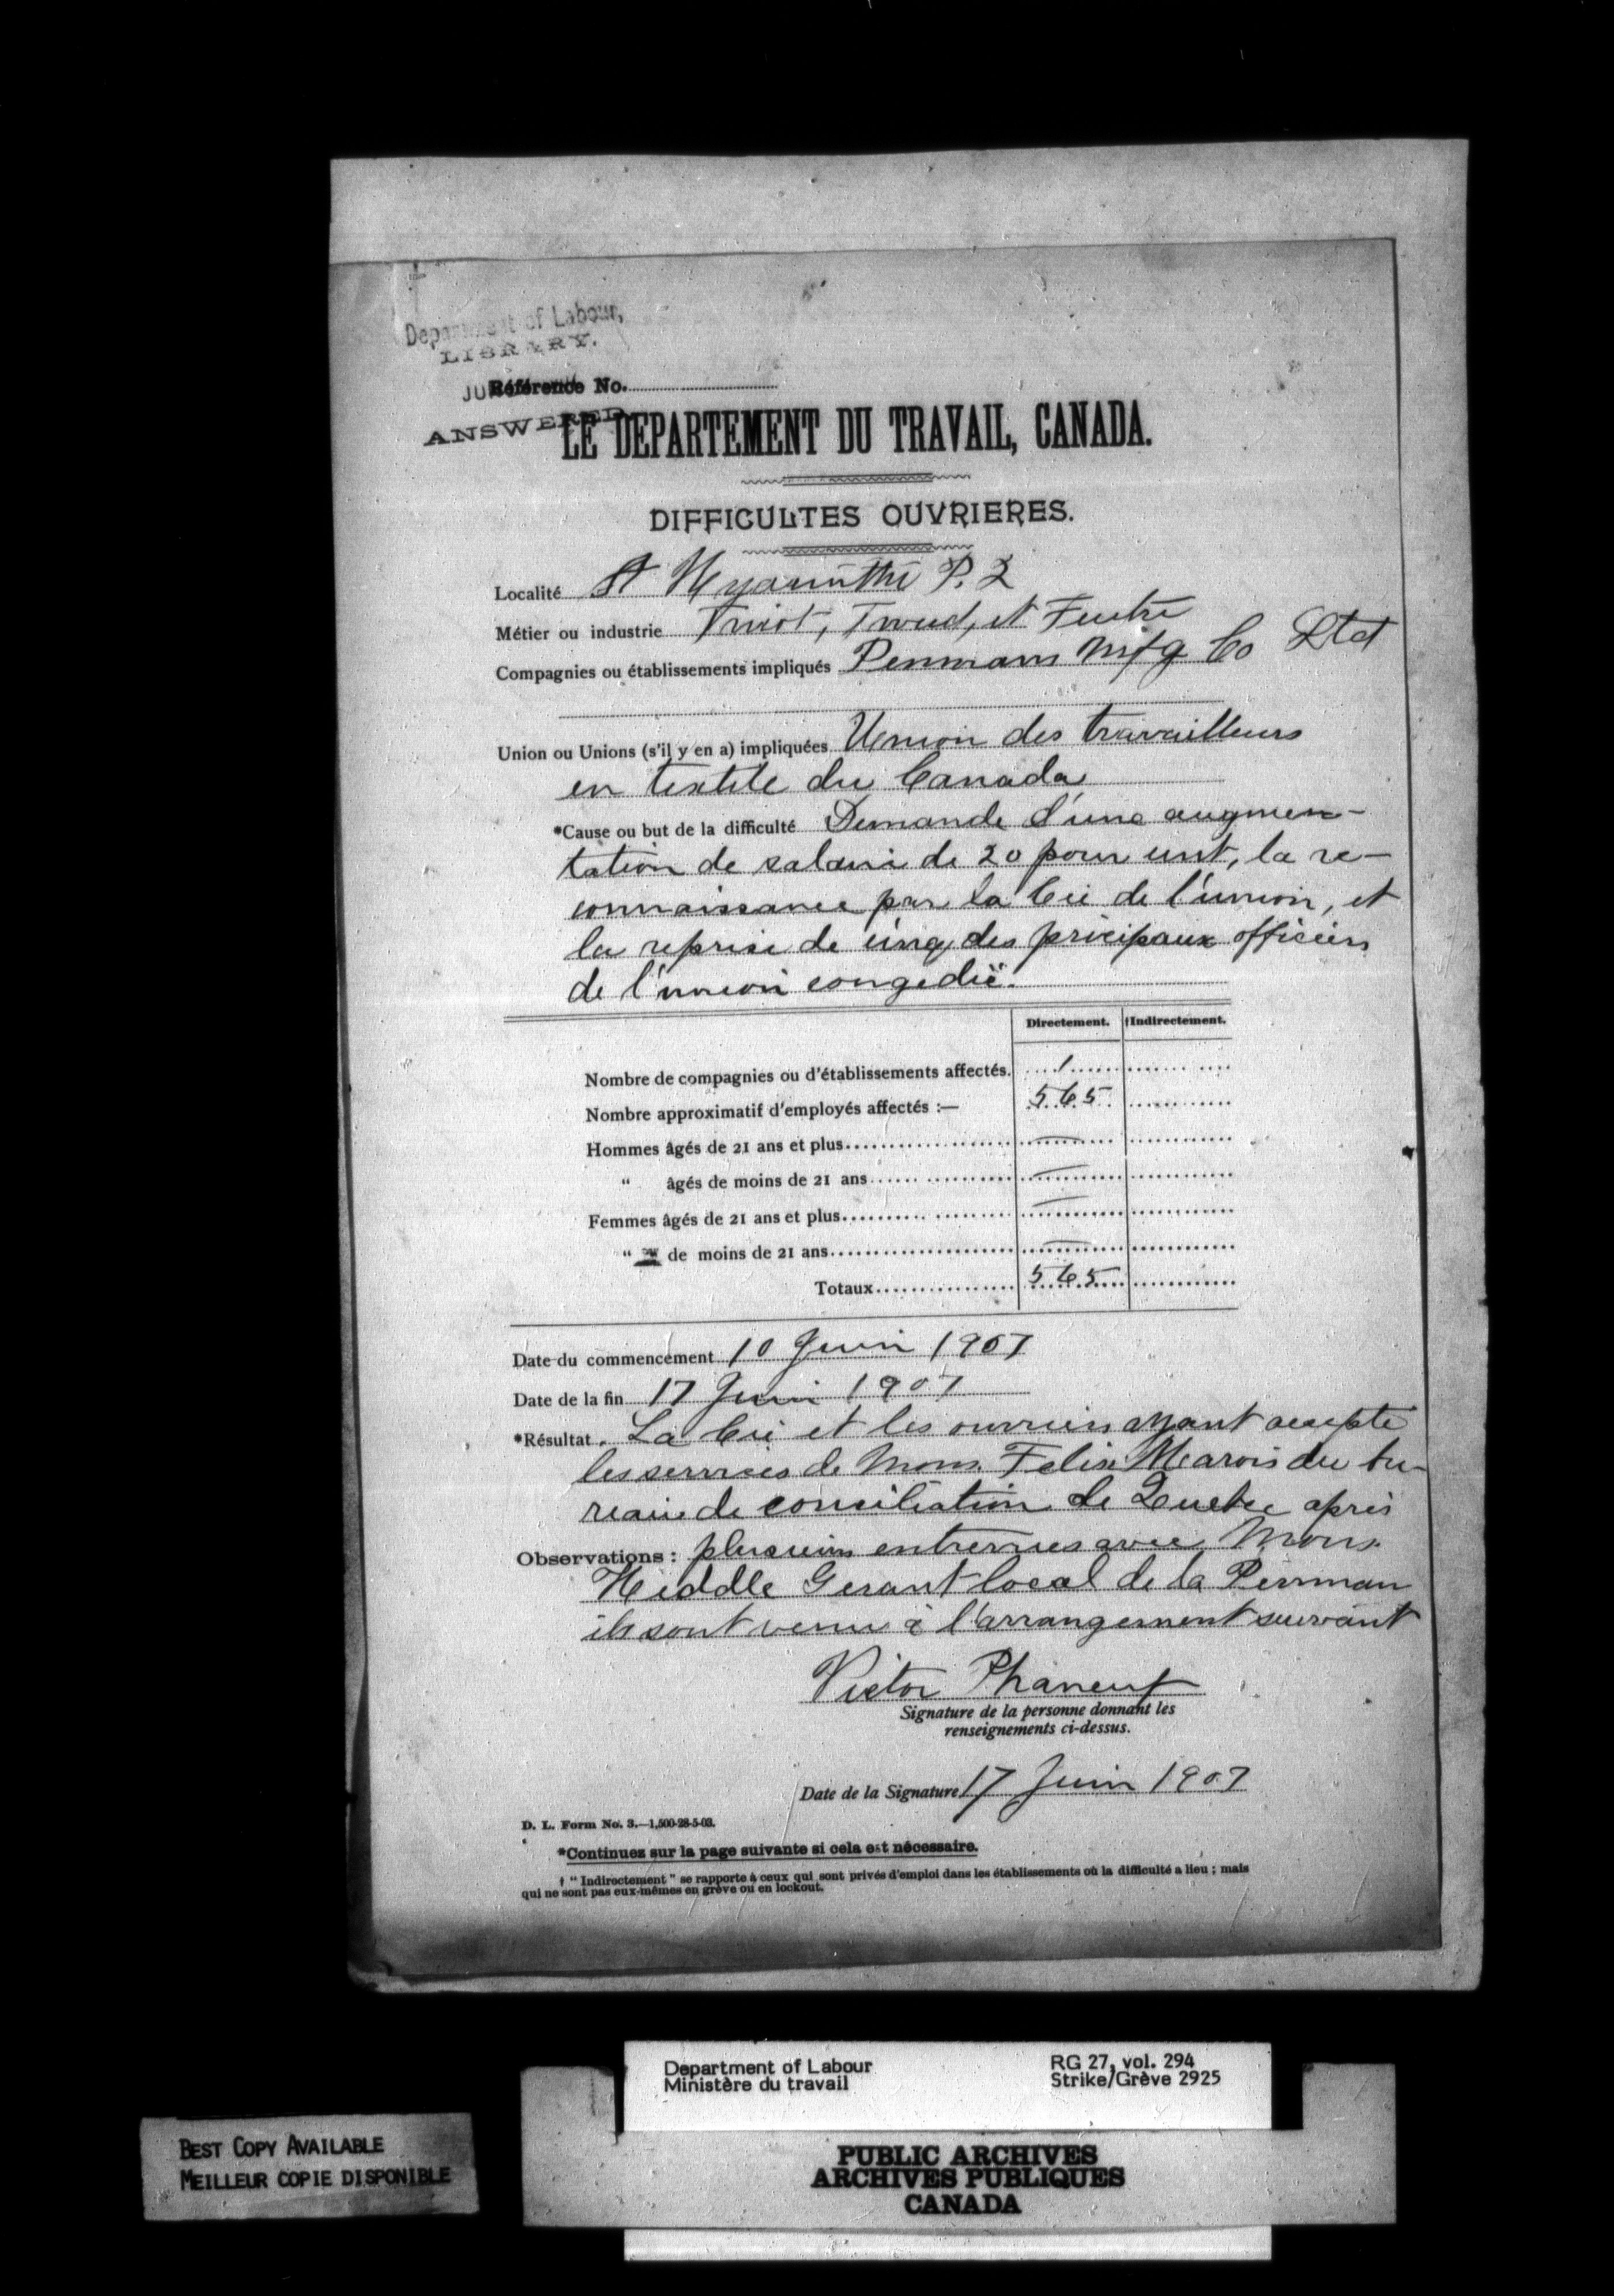 Department of Labour,
LIBRARY.
Référence No.
ANSWERED
LE DEPARTEMENT DU TRAVAIL, CANADA.
DIFFICULTES OUVRIERES.
Localité St Hyacinthe P. Q
Métier ou industrie Tricot, Tweed, et Feutre
Compagnies ou établissements impliqués Penmans Mfg Co Ltd
Union ou Unions (s'il y en a) impliquées Union des travailleurs
en textile du Canada
*Cause ou but de la difficulté Demande d'une augmen-
tation de salaire de 20 pour cent, la re-
connaissance par la Cie de l'union, et
la reprise de cinq des pricipaux officiers
de l'union congedié.
Directement. †Indirectement.
Nombre de compagnies ou d'établissements affectés. 1
Nombre approximatif d'employés affectés :— 565
Hommes âgés de 21 ans et plus
" âgés de moins de 21 ans
Femmes âgés de 21 ans et plus
" de moins de 21 ans
Totaux 565
Date du commencement 10 Juin 1907
Date de la fin 17 Juin 1907
*Résultat. La Cie et les ouvriers ayant accepté
les services de Mons. Felix Marois du bu-
reau de conciliation de Quebec après
Observations : plusieurs entrevues avec Mons.
Heddle Gerant local de la Penman
ils sont venu à l'arrangement suivant
Victor Phaneuf
Signature de la personne donnant les
renseignements ci-dessus.
Date de la Signature 17 Juin 1907
D. L. Form No. 3.—1,500-28-5-03.
*Continuez sur la page suivante si cela est nécessaire.
† "Indirectement" se rapporte à ceux qui sont privés d'emploi dans les établissements où la difficulté a lieu ; mais
qui ne sont pas eux-mêmes en grève ou en lockout.
Department of Labour RG 27, vol. 294
Ministère du travail Strike/Grève 2925
BEST COPY AVAILABLE
MEILLEUR COPIE DISPONIBLE
PUBLIC ARCHIVES
ARCHIVES PUBLIQUES
CANADA